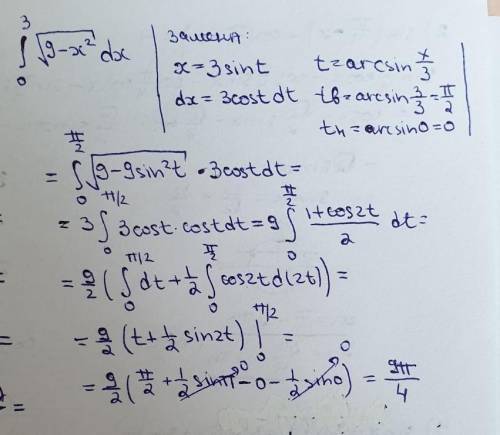 ∫₀³ √(9-x²) dx | Замена:
x = 3sint t = arcsin x/3
dx = 3cost dt tв = arcsin 3/3 = π/2
tн = arcsin0 = 0
= ∫₀^(π/2) √(9-9sin²t) · 3cost dt =
= 3 ∫₀^(π/2) 3cost · cost dt = 9 ∫₀^(π/2) (1+cos2t)/2 dt =
= 9/2 (∫₀^(π/2) dt + 1/2 ∫₀^(π/2) cos2t d(2t)) =
= 9/2 (t + 1/2 sin2t) |₀^(π/2) =
= 9/2 (π/2 + 1/2 sinπ 0 - 0 - 1/2 sin0 0) = 9π/4